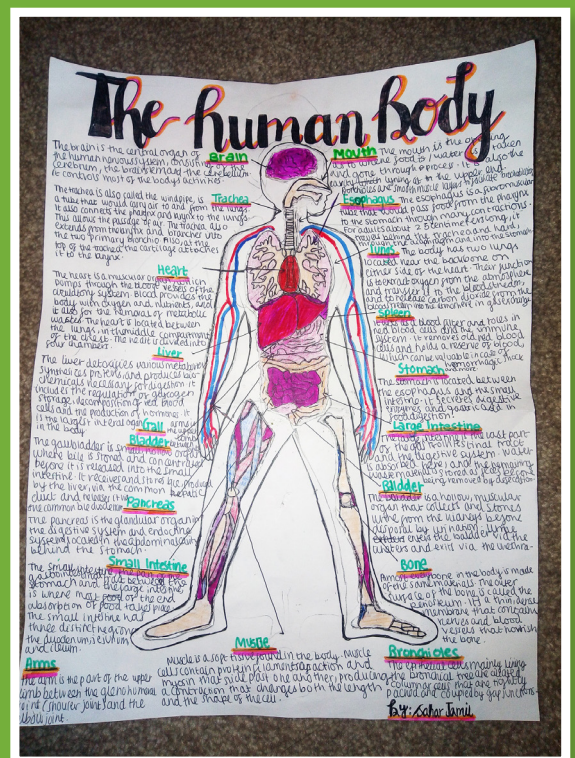 The human Body
Brain
The brain is the central organ of
the human nervous system, consisting of the
cerebrum, the brainstem and the cerebellum
it controls most of the body's activities
Trachea
The trachea is also called the windpipe, is
a tube that would carry air to and from the lungs
it also connects the pharynx and larynx to the lungs
This allows the passage of air. The trachea also
extends from the larynx and branches into
the two primary bronchi. Also, at the
top of trachea the cartilage attaches
it to the larynx.
Heart
The heart is a muscular organ, which
pumps through the blood vessels of the
circulatory system. Blood provides the
body with oxygen and nutrients, and
it also for the removal of metabolic
wastes. The heart is located between
the lungs, in the middle compartment
of the chest. The heart is divided in
four chambers.
Liver
The liver detoxifies various metabolites
synthesizes proteins and produces
chemicals necessary for digestion. it
includes the regulation of glycogen
storage, decomposition of red blood
cells and the production of hormones. It
is the largest internal organ
in the body
Gall
Bladder
The gallbladder is small hollow organ
where bile is stored and concentrated
before it is released into the small
intestine. it receives and stores bile, produced
by the liver, via the common hepatic
duct and releases it via
the common bile duct
Pancreas
The pancreas is the glandular organ in
the digestive system and endocrine
system located in the abdominal cavity
behind the stomach.
Small Intestine
The small intestine, the part of the
stomach and the large intestine,
is where most food of the end
absorption of food takes place.
The small intestine has
three distinct regions
the duodenum, jejunum
and ileum.
Arms
The arm is the part of the upper
limb between the glenohumeral
joint (shoulder joint) and the
elbow joint.
Muscle
Muscle is a soft tissue found in the body. Muscle
cells contain protein filaments of actin and
myosin that slide past one another, producing
a contraction that changes both the length
and the shape of the cell.
Mouth
The mouth is the opening
Esophagus
The esophagus is a fibromuscular
tube that would pass food from the pharynx
to the stomach
Lungs
The body has two lungs
located near the backbone on
either side of the heart. Their function
is to extract oxygen from the atmosphere
and transfer it to the bloodstream
and to release carbon dioxide from the
Spleen
red blood cells and the immune
system. it removes old red blood
cells and holds a reserve of blood,
which can be valuable in case of
hemorrhagic shock
Stomach
The stomach is located between
the esophagus and the small
intestine. it secretes digestive
enzymes and gastric acid in
food digestion.
Large Intestine
The large intestine is the last part
of the gastrointestinal tract
and the digestive system. Water
is absorbed here, and the remaining
waste material is stored as feces before
being removed by
Bladder
The bladder is a hollow, muscular
organ that collects and stores
urine from the kidneys before
disposal by urinating. Urine
enters the bladder via the
ureters and exits via the urethra.
Bone
Almost every bone in the body is made
of the same materials. The outer
surface of the bone is called the
periosteum. It's a thin, dense
membrane that contains
nerves and blood
vessels that nourish
the bone.
Bronchioles
The epithelial cells mainly lining
the bronchial tree are ciliated
columnar cells that are tightly
packed and coupled by gap junctions
By: Sahar Jamil